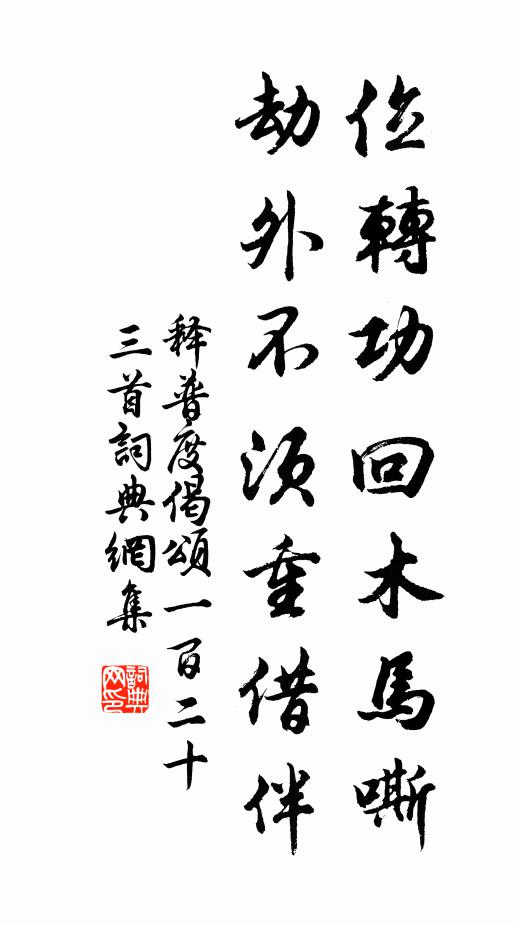 位轉功回木馬嘶
劫外不須重借伴
释普度偈頌一百二十
三首詞典網集
詞典網印